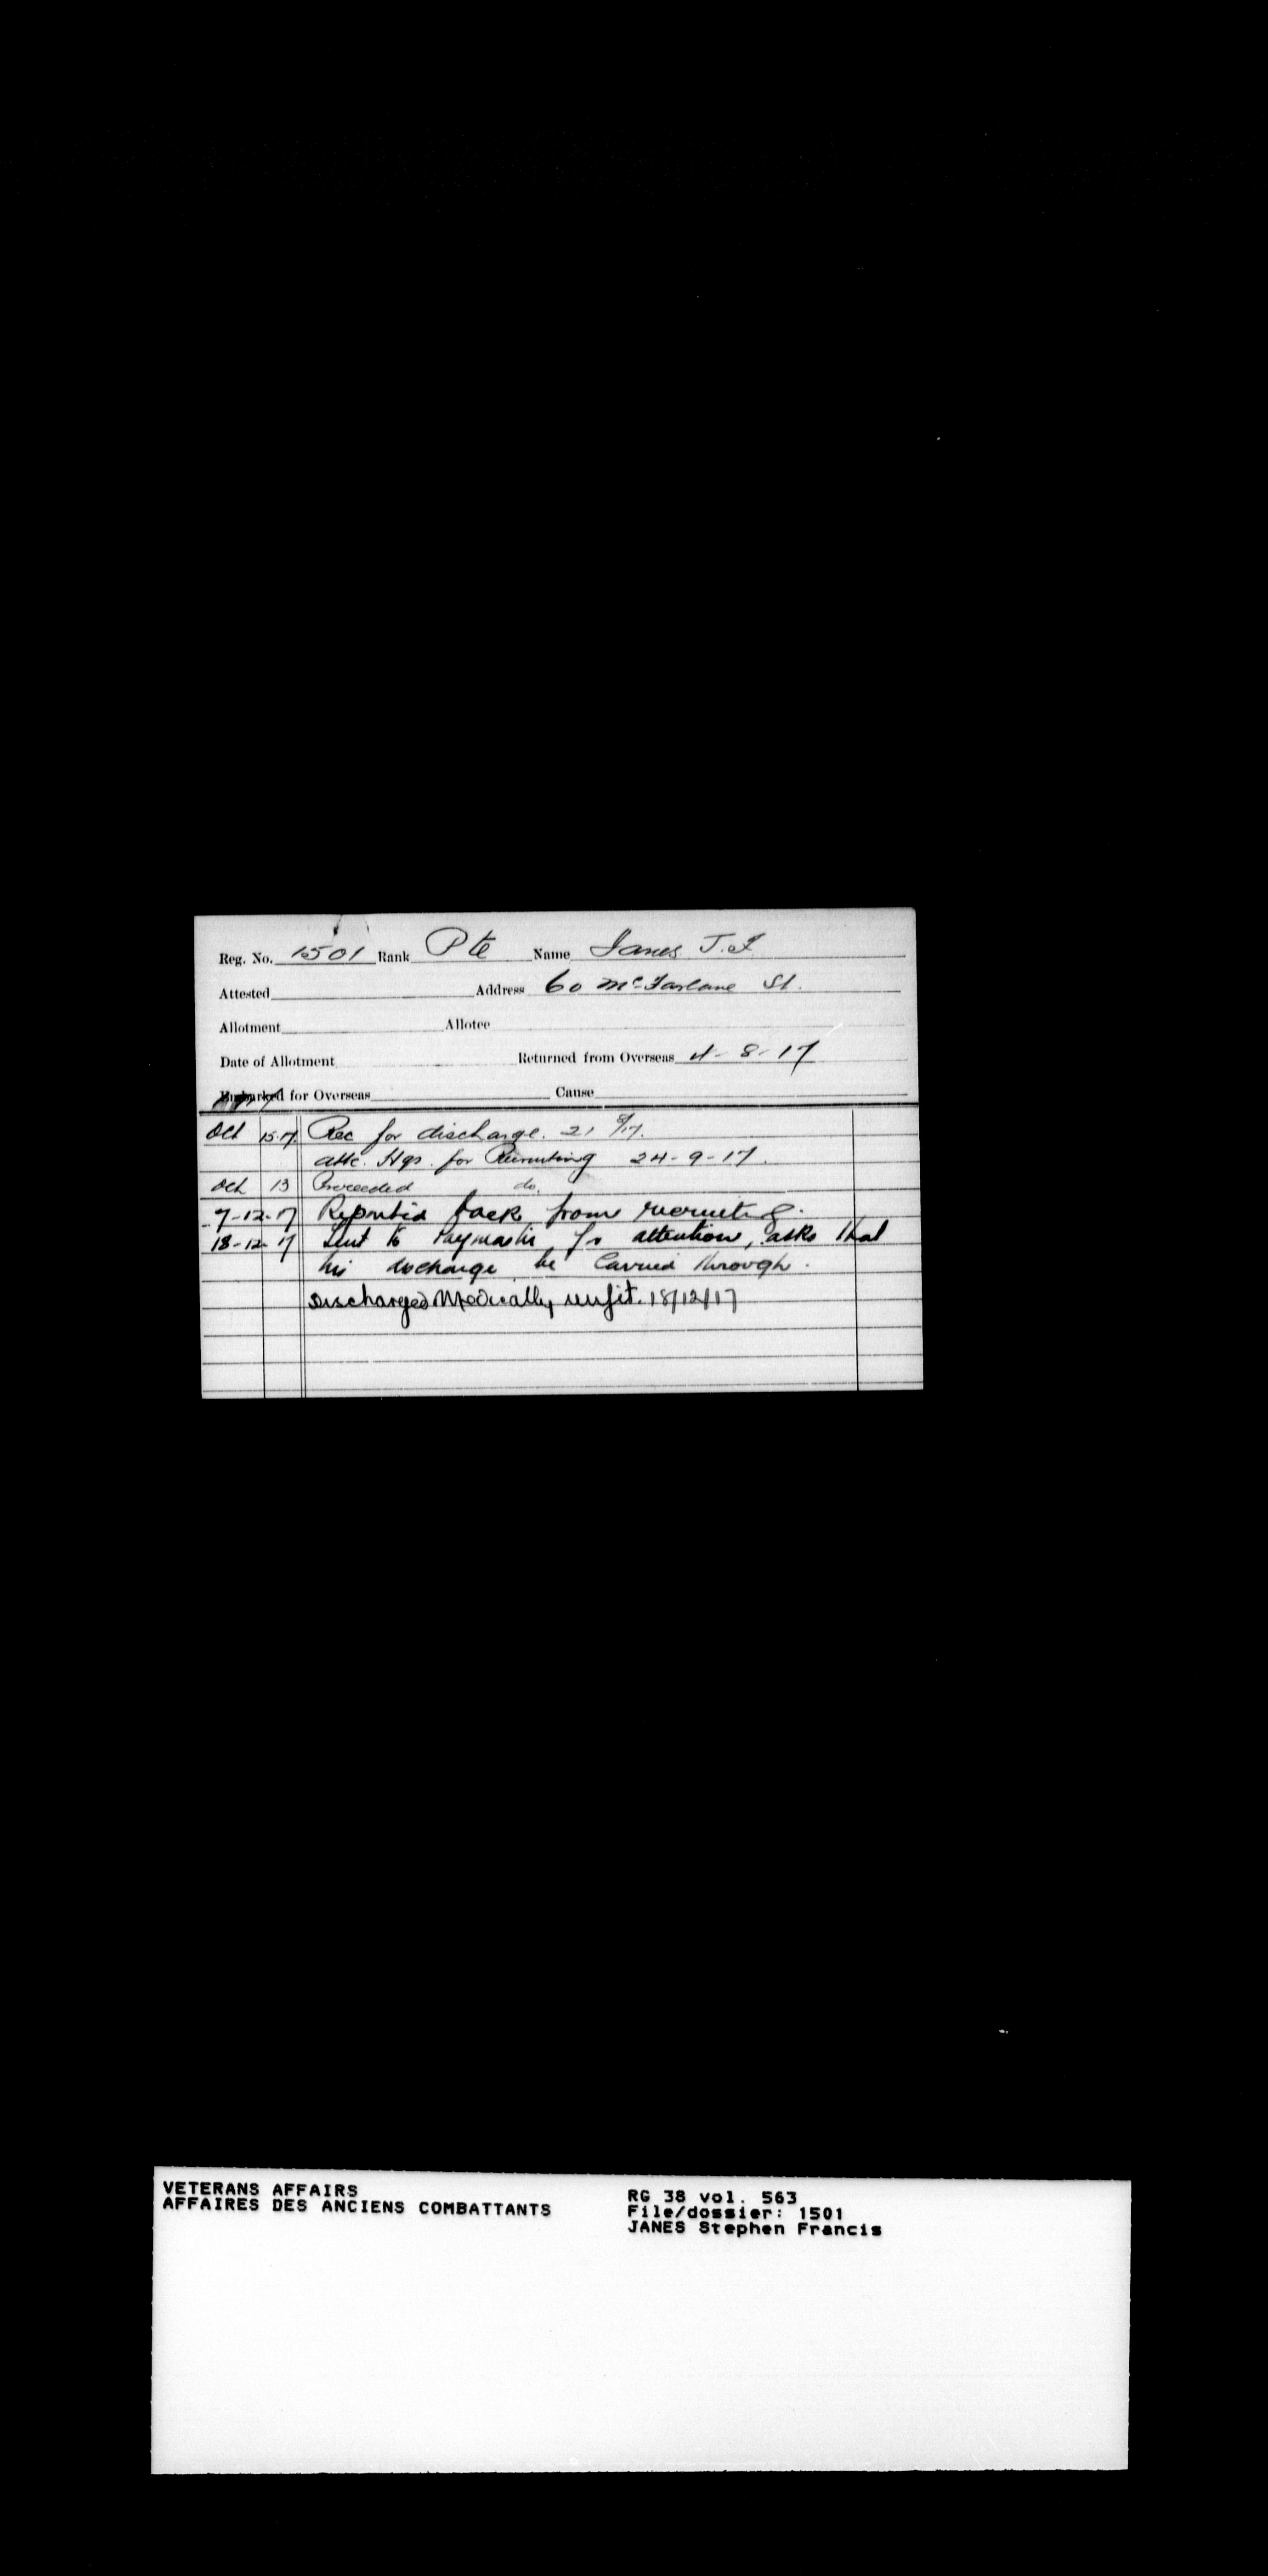 Reg. No. 1501 Rank Pte Name Janes J.F
Attested Address 60 McFarlane St.
Allotment Allotee
Date of Allotment Returned from Overseas 4-8-17
Embarked for Overseas Cause
Oct 15.17 Rec for discharge. 21 8/17.
attc. Hqs. for Recruiting 24-9-17.
Oct 13 Proceeded do.
7-12-17 Reported back from recruiting.
18-12-17 Sent to Paymaster for attention, asks that
his discharge be carried through.
Discharged Medically unfit. 18/12/17
VETERANS AFFAIRS
AFFAIRES DES ANCIENS COMBATTANTS
RG 38 vol. 563
File/dossier: 1501
JANES Stephen Francis